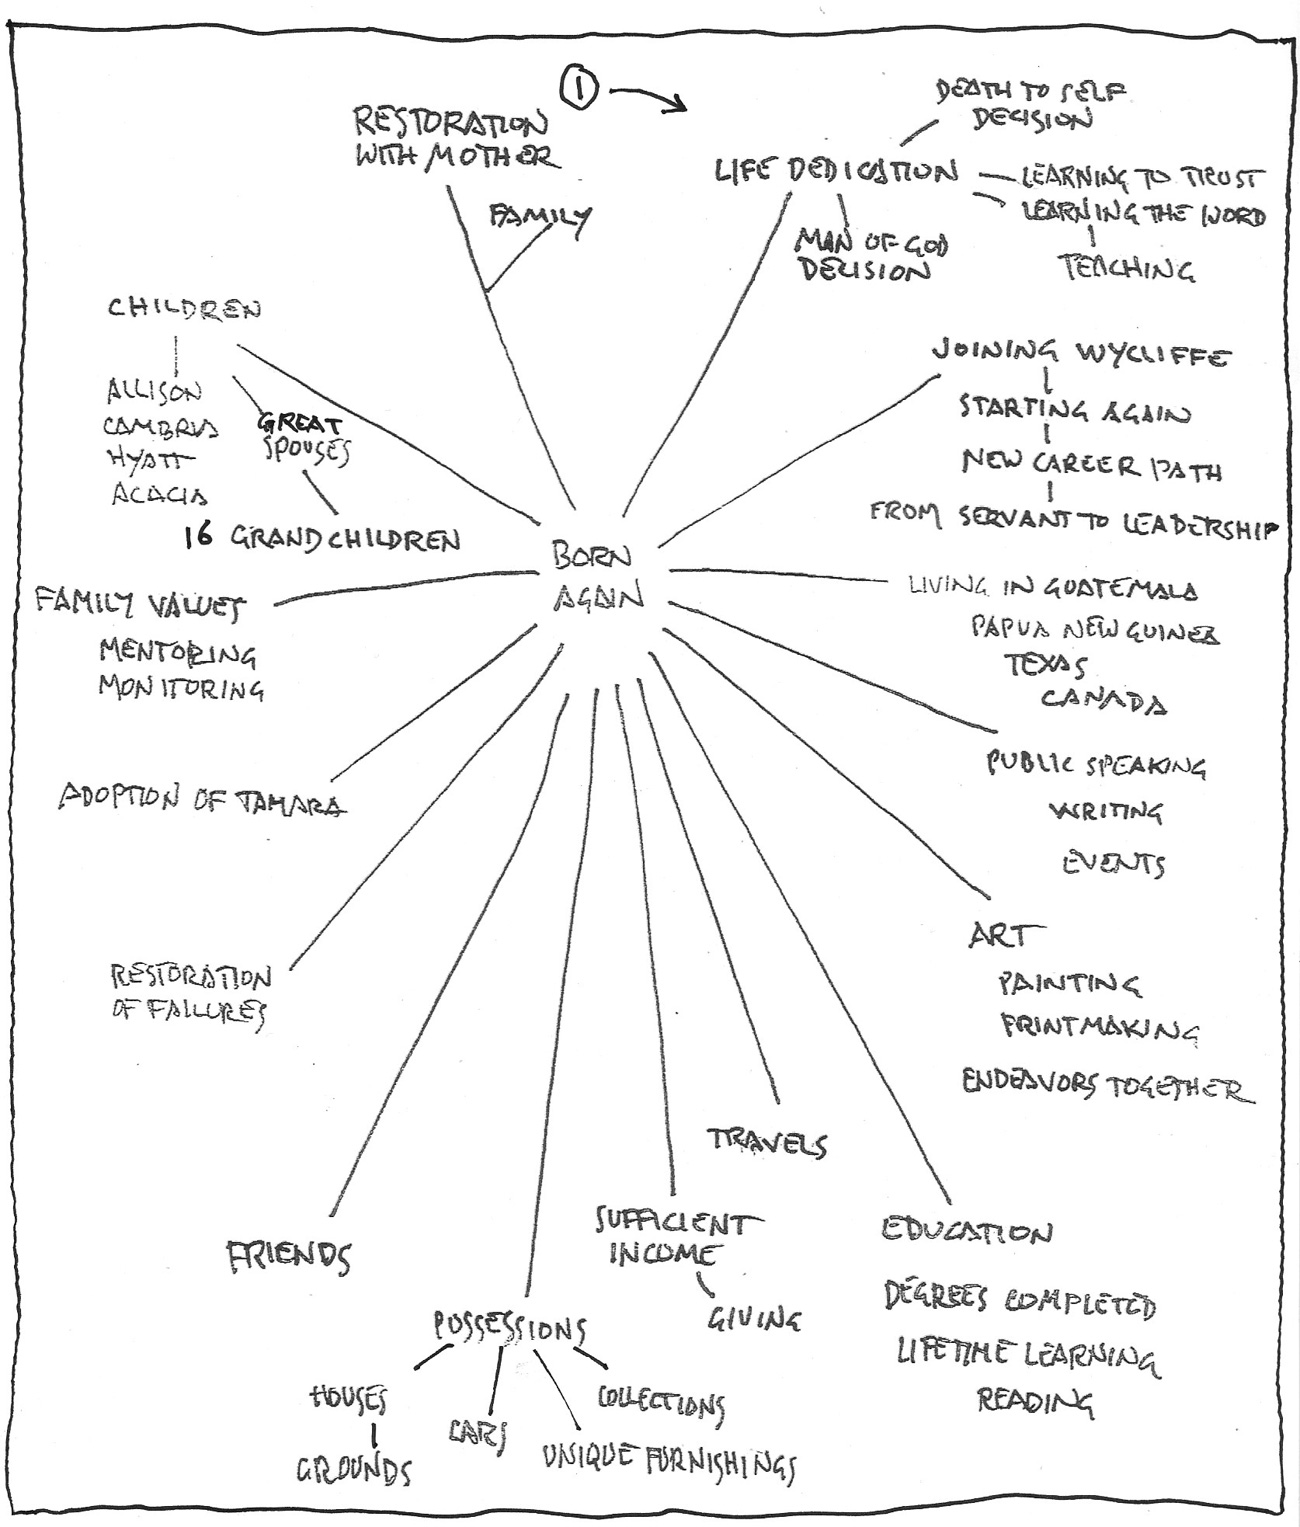 1
RESTORATION
WITH MOTHER
FAMILY
DEATH TO SELF
DECISION
LIFE DEDICATION
LEARNING TO TRUST
LEARNING THE WORD
TEACHING
MAN OF GOD
DECISION
JOINING WYCLIFFE
STARTING AGAIN
NEW CAREER PATH
FROM SERVANT TO LEADERSHIP
BORN
AGAIN
LIVING IN GUATEMALA
PAPUA NEW GUINEA
TEXAS
CANADA
PUBLIC SPEAKING
WRITING
EVENTS
ART
PAINTING
PRINTMAKING
ENDEAVORS TOGETHER
EDUCATION
DEGREES COMPLETED
LIFETIME LEARNING
READING
TRAVELS
SUFFICIENT
INCOME
GIVING
POSSESSIONS
HOUSES
GROUNDS
CARS
UNIQUE FURNISHINGS
COLLECTIONS
FRIENDS
RESTORATION
OF FAILURES
ADOPTION OF TAMARA
FAMILY VALUES
MENTORING
MONITORING
CHILDREN
ALLISON
CAMBRIA
HYATT
ACACIA
GREAT
SPOUSES
16 GRANDCHILDREN